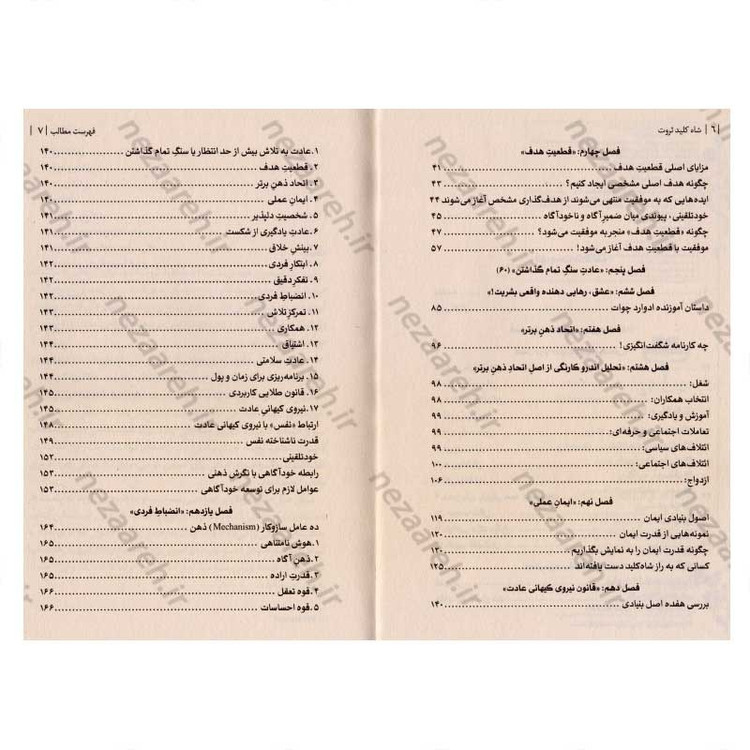 |۶| شاه کلید ثروت
فصل چهارم: «قطعیتِ هدف»
مزایای اصلی قطعیت هدف ۴۱
چگونه هدف اصلی مشخصی ایجاد کنیم؟ ۴۲
ایده‌هایی که به موفقیت منتهی می‌شوند از هدف‌گذاری مشخص آغاز می‌شوند ۴۴
خودتلقینی، پیوندی میان ضمیرِ آگاه و ناخودآگاه ۴۵
چگونه «قطعیتِ هدف» منجر به موفقیت می‌شود؟ ۴۷
موفقیت با قطعیتِ هدف آغاز می‌شود! ۵۷
فصل پنجم: «عادتِ سنگِ تمام گذاشتن» (۶۰)
فصل ششم: «عشق، رهایی دهنده واقعی بشریت!»
داستان آموزنده ادوارد چوات ۸۵
فصل هفتم: «اتحاد ذهنِ برتر»
چه کارنامه شگفت‌انگیزی! ۹۶
فصل هشتم: «تحلیل اندرو کارنگی از اصلِ اتحادِ ذهنِ برتر»
شغل: ۹۸
انتخاب همکاران: ۹۸
آموزش و یادگیری: ۹۹
تعاملات اجتماعی و حرفه‌ای: ۹۹
ائتلاف‌های سیاسی: ۹۹
ائتلاف‌های اجتماعی: ۱۰۰
ازدواج: ۱۰۶
فصل نهم: «ایمانِ عملی»
اصول بنیادی ایمان ۱۱۹
نمونه‌هایی از قدرت ایمان ۱۲۰
چگونه قدرت ایمان را به نمایش بگذاریم ۱۲۰
کسانی که به رازِ شاه‌کلید دست یافته‌اند ۱۲۵
فصل دهم: «قانون نیروی کیهانی عادت»
بررسی هفده اصل بنیادی ۱۴۰
فهرست مطالب |۷|
۱. عادت به تلاش بیش از حد انتظار یا سنگِ تمام گذاشتن ۱۴۰
۲. قطعیتِ هدف ۱۴۰
۳. اتحاد ذهنِ برتر ۱۴۰
۴. ایمان عملی
۵. شخصیتِ دلپذیر ۱۴۱
۶. عادتِ یادگیری از شکست ۱۴۱
۷. بینشِ خلاق ۱۴۱
۸. ابتکارِ فردی ۱۴۲
۹. تفکرِ دقیق ۱۴۲
۱۰. انضباطِ فردی ۱۴۲
۱۱. تمرکزِ تلاش ۱۴۳
۱۲. همکاری ۱۴۳
۱۳. اشتیاق ۱۴۴
۱۴. عادتِ سلامتی ۱۴۴
۱۵. برنامه‌ریزی برای زمان و پول ۱۴۴
۱۶. قانون طلایی کاربردی ۱۴۵
۱۷. نیروی کیهانیِ عادت ۱۴۵
ارتباط «نفس» با نیروی کیهانی عادت ۱۴۸
قدرت ناشناخته نفس ۱۴۹
خودتلقینی ۱۵۲
رابطه خودآگاهی با نگرش ذهنی ۱۵۳
عوامل لازم برای توسعه خودآگاهی ۱۵۳
فصل یازدهم: «انضباطِ فردی»
ده عامل سازوکار (Mechanism) ذهن ۱۶۴
۱. هوش نامتناهی ۱۶۵
۲. ذهنِ آگاه ۱۶۵
۳. قدرتِ اراده ۱۶۵
۴. قوه تعقل ۱۶۶
۵. قوه احساسات ۱۶۶
nezaareh.ir